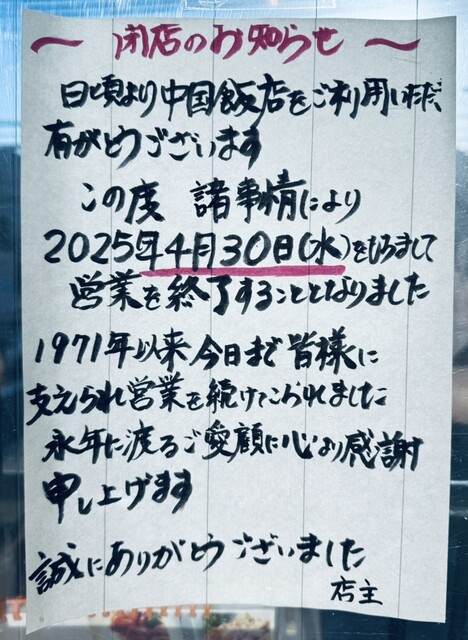 ～ 閉店のお知らせ ～
日頃より中国飯店をご利用いただ
有がとうございます
この度 諸事情により
2025年4月30日(水)をもちまして
営業を終了することとなりました
1971年以来今日まで皆様に
支えられ営業を続けてこられました
永年に渡るご愛顧に心より感謝
申し上げます
誠にありがとうございました
店主